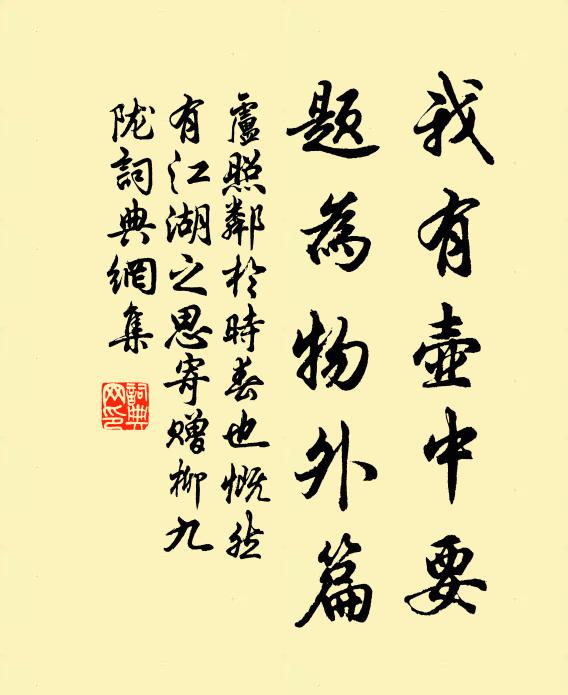 我有壺中要
題為物外篇
盧照鄰於時春也慨然
有江湖之思寄贈柳九
陇詞典網集
詞典
网印